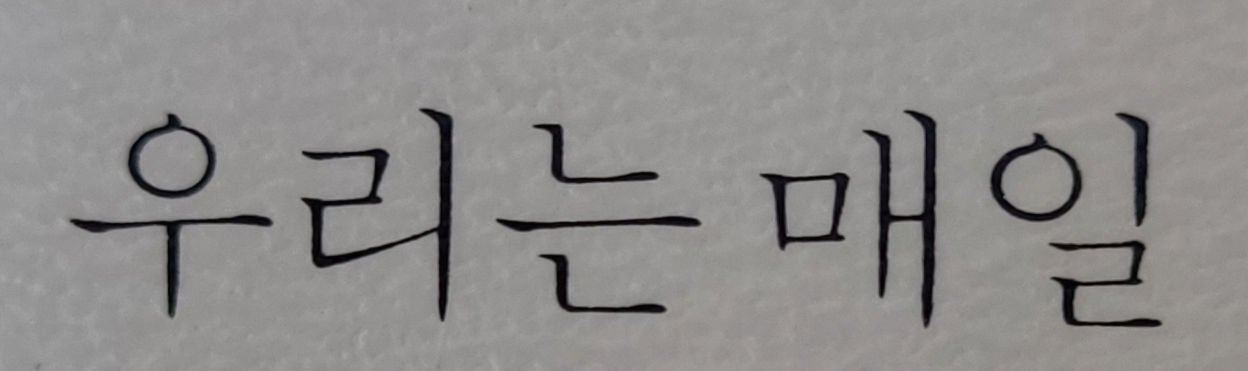 우리는 매일